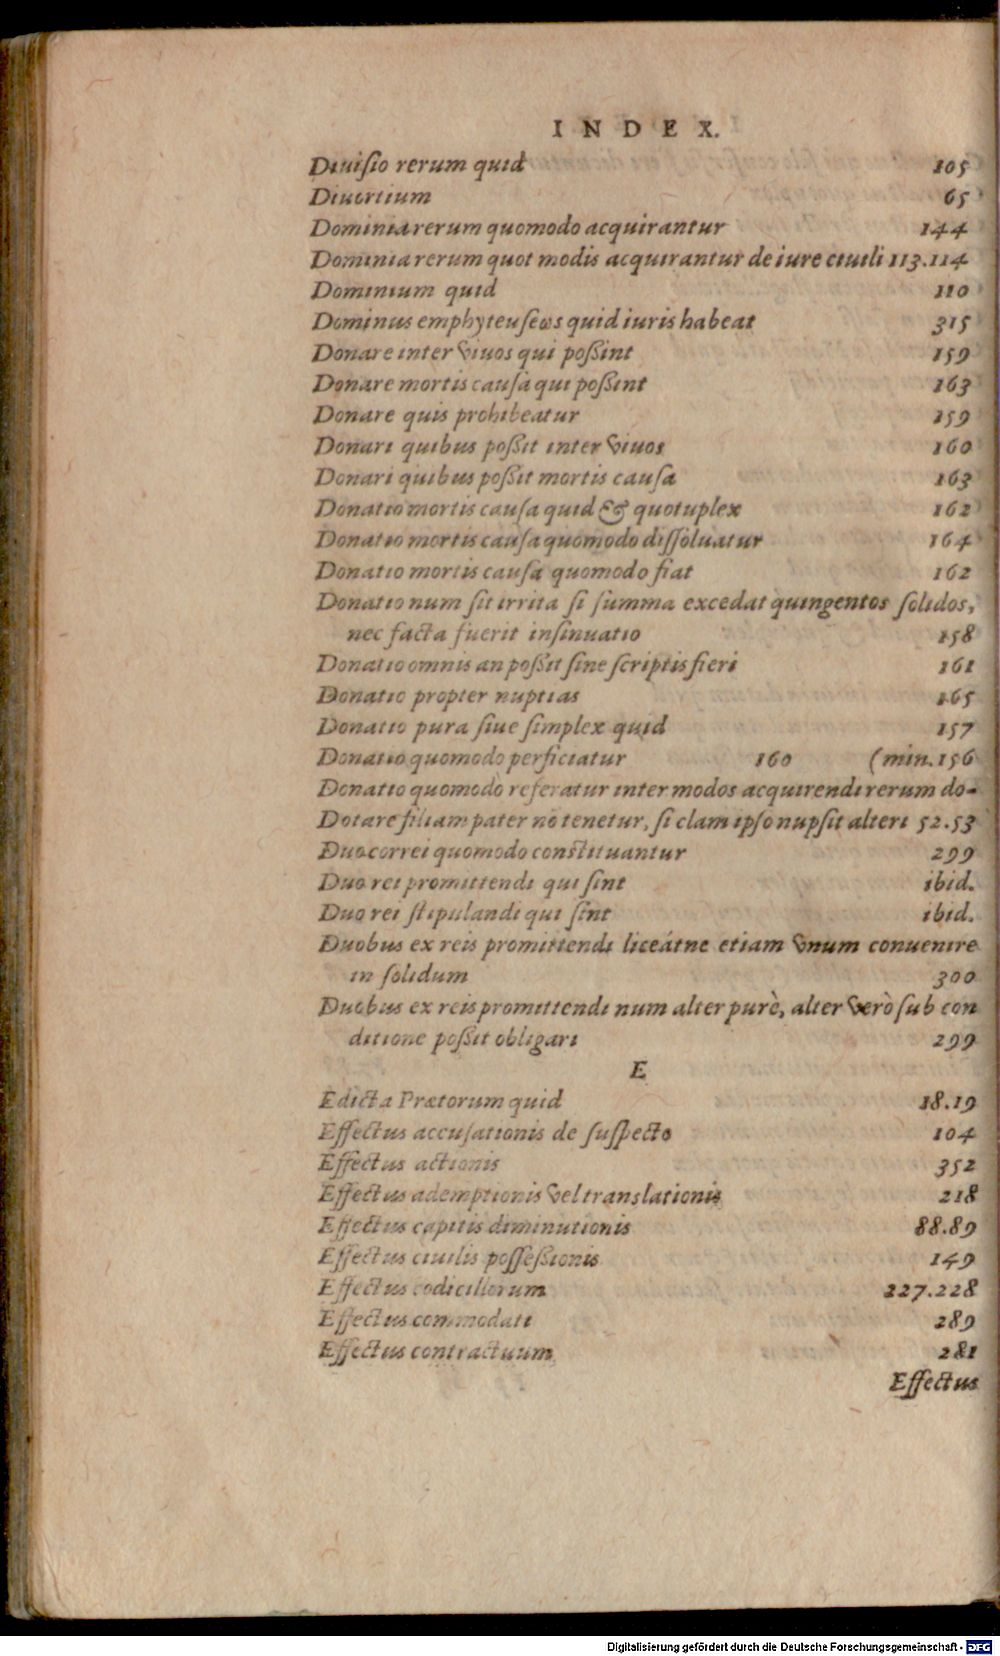 INDEX.
Diuiſio rerum quid 105
Diuortium 65
Dominia rerum quomodo acquirantur 144
Dominia rerum quot modis acquirantur de iure ciuili 113.114
Dominium quid 110
Dominus emphyteuſeωs quid iuris habeat 315
Donare inter viuos qui poßint 159
Donare mortis cauſa qui poßint 163
Donare quis prohibeatur 159
Donari quibus poßit inter viuos 160
Donari quibus poßit mortis cauſa 163
Donatio mortis cauſa quid & quotuplex 162
Donatio mortis cauſa quomodo diſſoluatur 164
Donatio mortis cauſa quomodo fiat 162
Donatio num ſit irrita ſi ſumma excedat quingentos ſolidos,
nec facta fuerit inſinuatio 158
Donatio omnis an poßit ſine ſcriptis fieri 161
Donatio propter nuptias 165
Donatio pura ſiue ſimplex quid 157
Donatio quomodo perficiatur 160 (min. 156
Donatio quomodò referatur inter modos acquirendi rerum do-
Dotare filiam pater nō tenetur, ſi clam ipſo nupſit alteri 52.53
Duo correi quomodo conſtituantur 299
Duo rei promittendi qui ſint ibid.
Duo rei ſtipulandi qui ſint ibid.
Duobus ex reis promittendi liceátne etiam vnum conuenire
in ſolidum 300
Duobus ex reis promittendi num alter purè, alter verò ſub con
ditione poßit obligari 299
E
Edicta Prætorum quid 18.19
Effectus accuſationis de ſuſpecto 104
Effectus actionis 352
Effectus ademptionis vel translationis 218
Effectus capitis diminutionis 88.89
Effectus ciuilis poſſeßionis 149
Effectus codicillorum 227.228
Effectus commodati 289
Effectus contractuum 281
Effectus
Digitalisierung gefördert durch die Deutsche Forschungsgemeinschaft - DFG